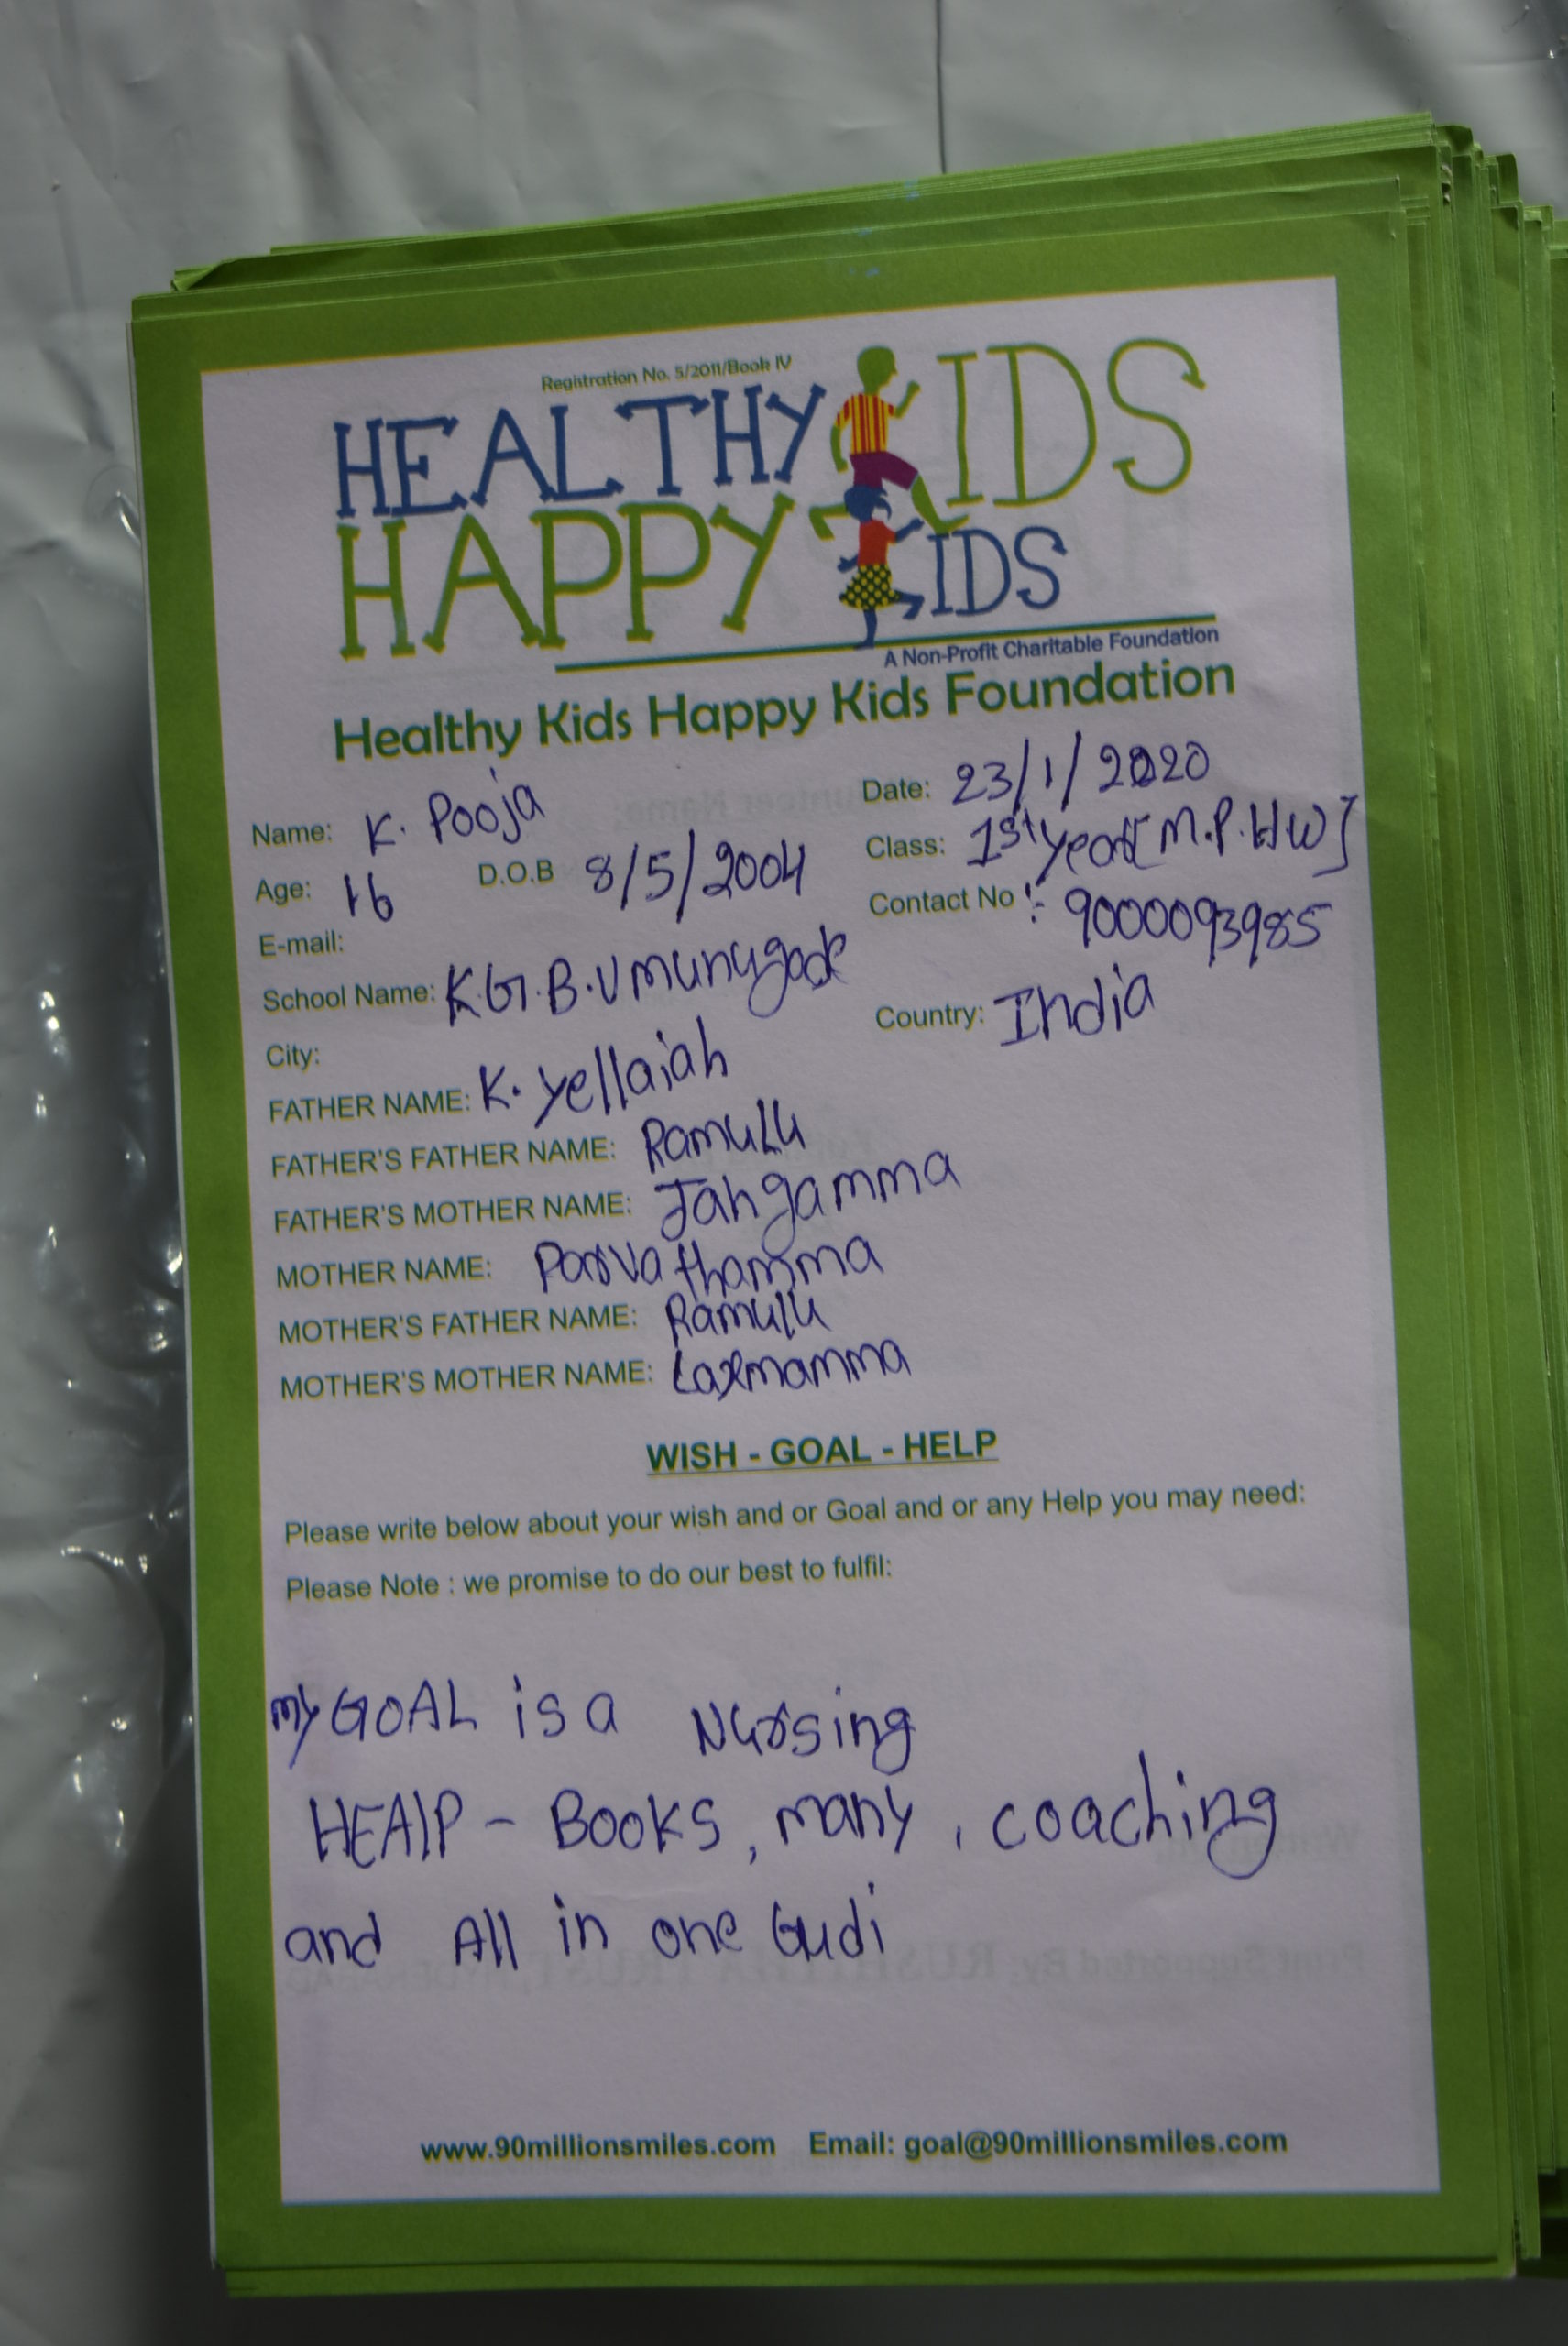 Registration No. 5/2011/Book IV
HEALTHY KIDS
HAPPY KIDS
A Non-Profit Charitable Foundation
Healthy Kids Happy Kids Foundation
Name: K. Pooja Date: 23/1/2020
Class: 1st year [M.P.H.W]
Age: 16 D.O.B 8/5/2004
Contact No :- 9000093985
E-mail:
School Name: K.G.B.V munugode
Country: India
City:
FATHER NAME: K. yellaiah
FATHER'S FATHER NAME: Ramulu
FATHER'S MOTHER NAME: Jangamma
MOTHER NAME: Parvathamma
MOTHER'S FATHER NAME: Ramulu
MOTHER'S MOTHER NAME: Laxmamma
WISH - GOAL - HELP
Please write below about your wish and or Goal and or any Help you may need:
Please Note : we promise to do our best to fulfil:
my GOAL is a Nursing
HEAlP - Books, many, coaching
and All in one Gudi
www.90millionsmiles.com Email: goal@90millionsmiles.com